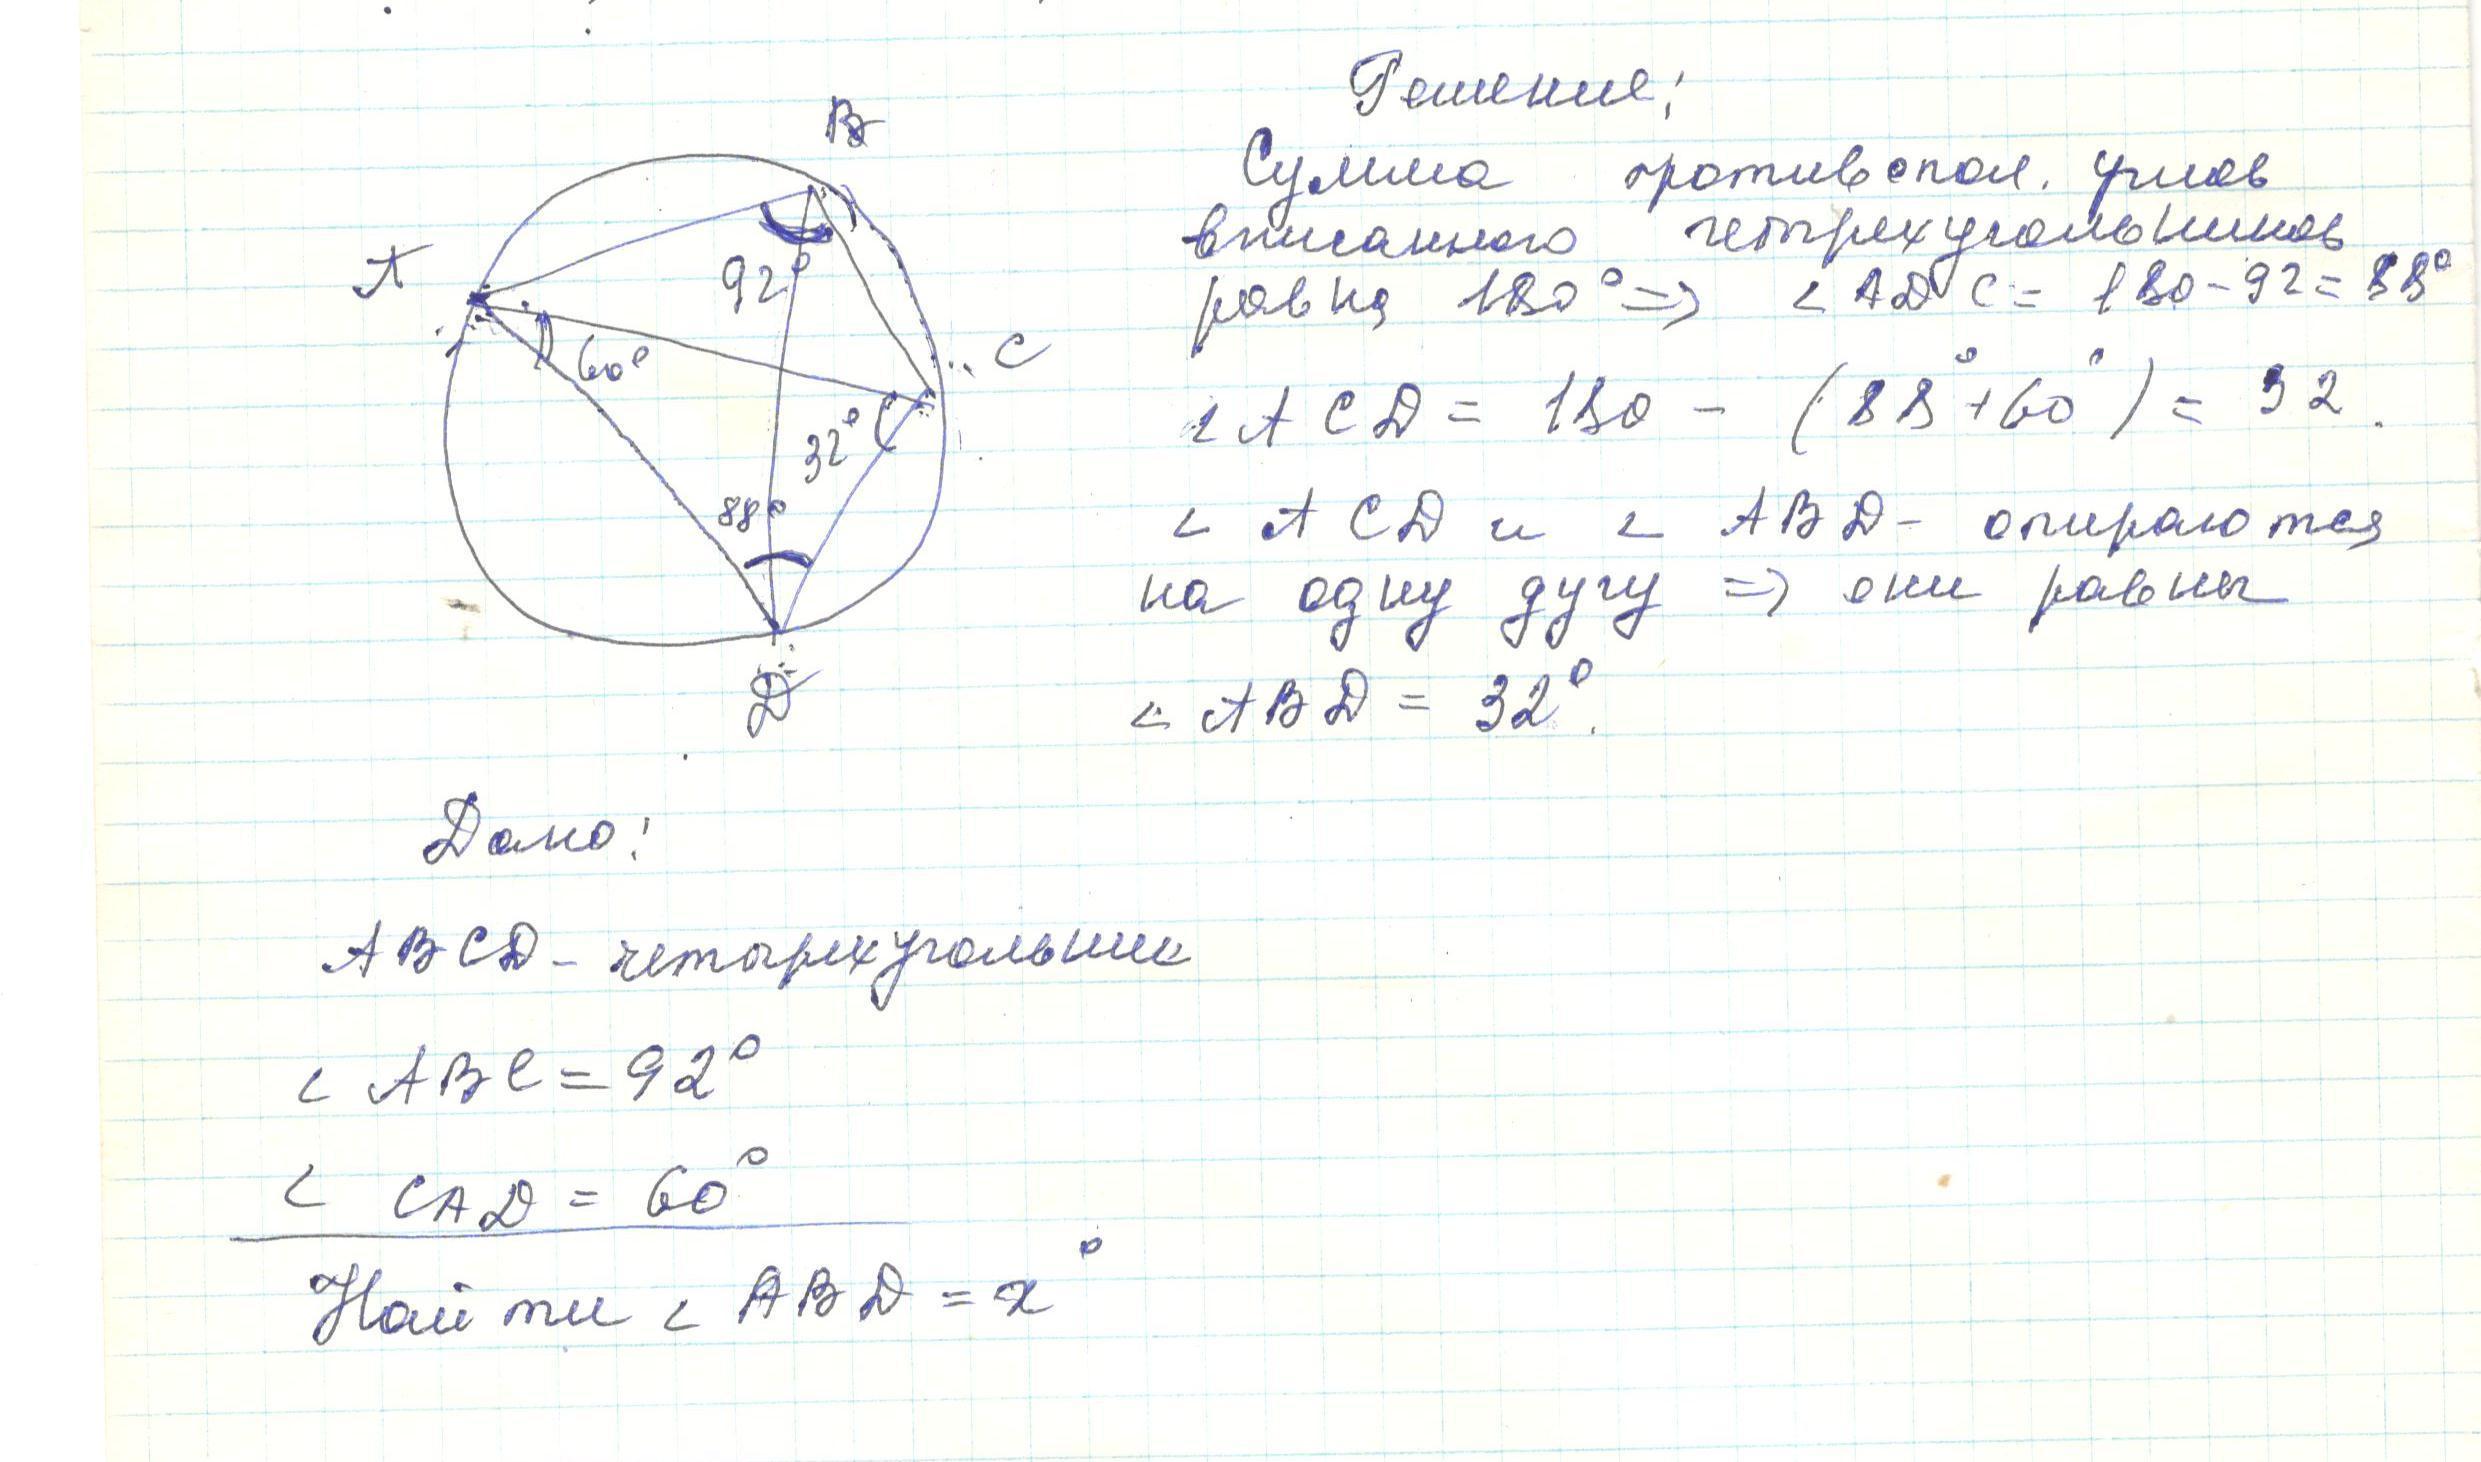 B
A
C
D
92°
60°
32°
88°
Решение:
Сумма противопол. углов
вписанного четырехугольников
равна 180° => < ADC = 180-92=88°
< ACD = 180 - (88°+60°) = 32.
< ACD и < ABD - опираются
на одну дугу => они равны
< ABD = 32°.
Дано:
ABCD - четырехугольник
< ABC = 92°
< CAD = 60°
Найти < ABD = x°